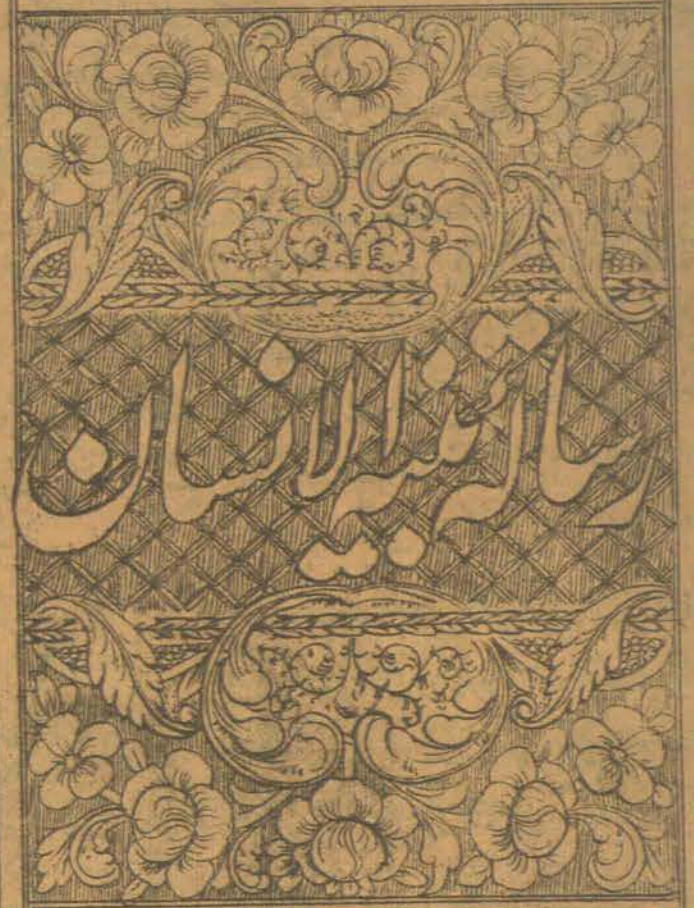 رسالة تنبيه الانسان